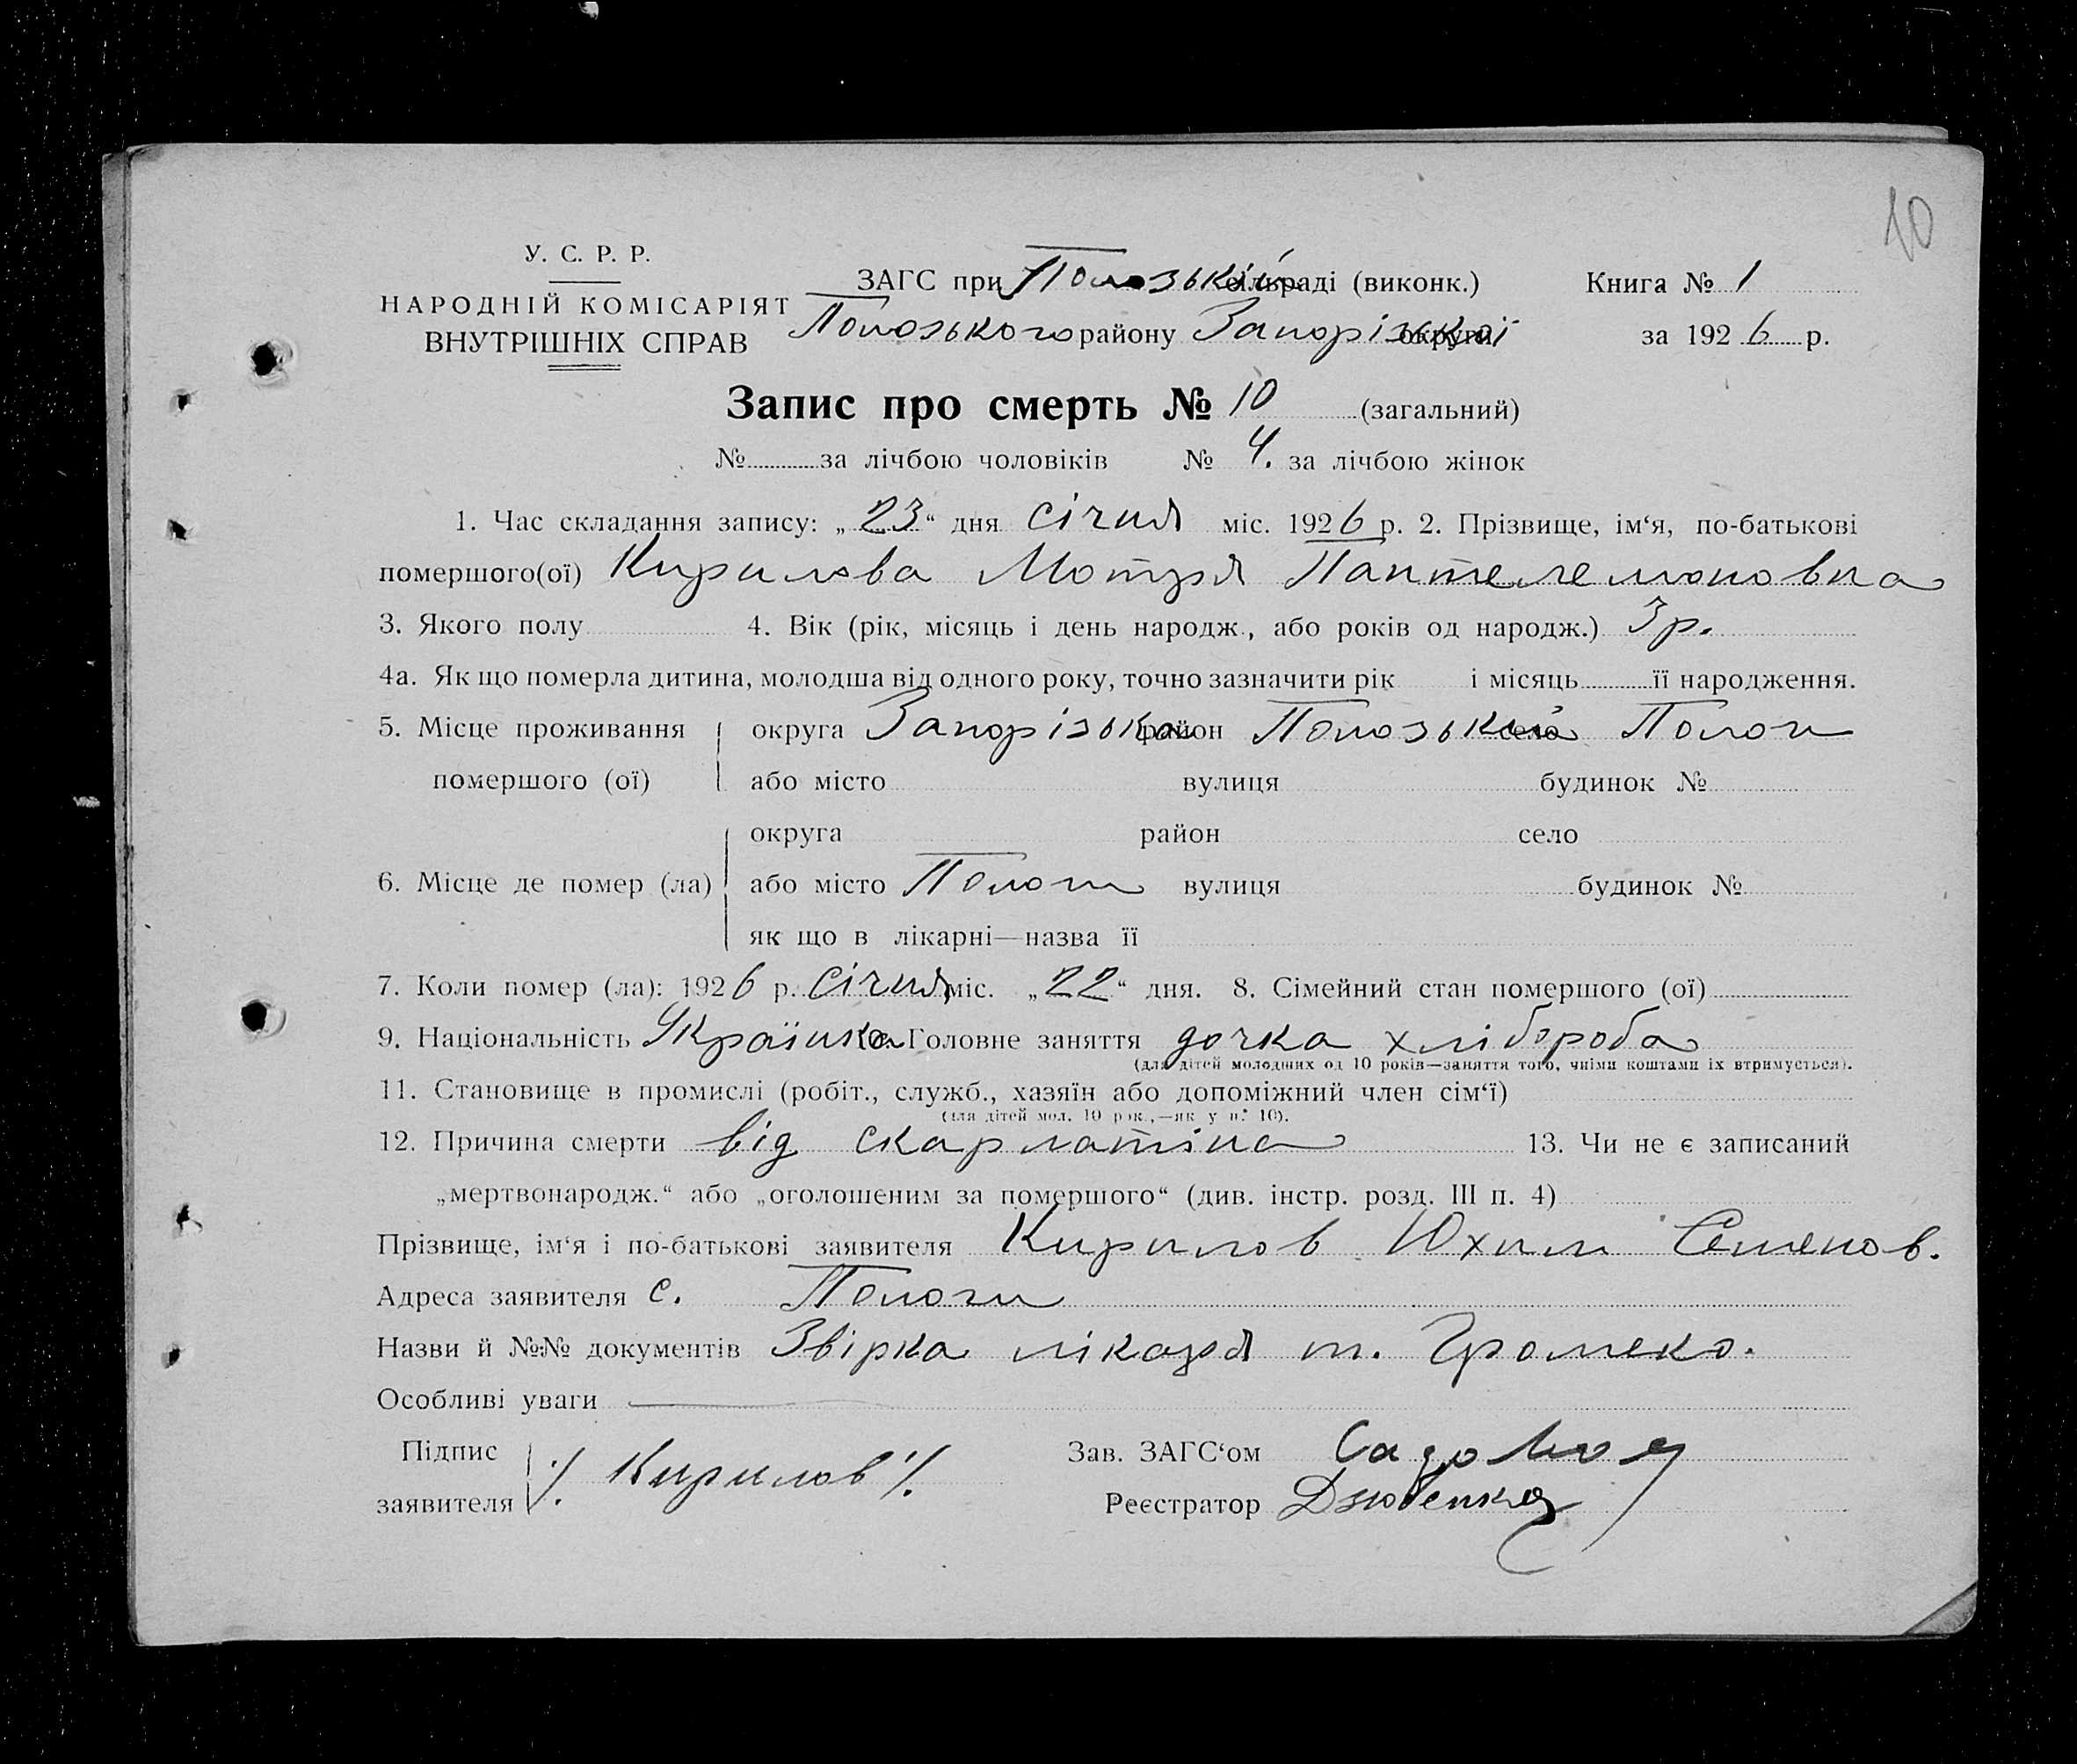 10
У. С. Р. Р.
НАРОДНІЙ КОМІСАРІЯТ
ВНУТРІШНІХ СПРАВ
ЗАГС при Положській сільраді (виконк.)
Положського району Запоріської округи
Книга № 1
за 1926 р.
Запис про смерть № 10 (загальний)
№ за лічбою чоловіків № 4. за лічбою жінок
1. Час складання запису: „23“ дня січня міс. 1926 р. 2. Прізвище, ім‘я, по-батькові
помершого(ої) Кирилова Мотря Пантелемоновна
3. Якого полу 4. Вік (рік, місяць і день народж., або років од народж.) 3 р.
4а. Як що померла дитина, молодша від одного року, точно зазначити рік і місяць її народження.
5. Місце проживання помершого (ої) округа Запорізька район Положський село Пологи
або місто вулиця будинок №
6. Місце де помер (ла) округа район село
або місто Пологи вулиця будинок №
як що в лікарні—назва її
7. Коли помер (ла): 1926 р. січня міс. „22“ дня. 8. Сімейний стан помершого (ої)
9. Національність Українка 10. Головне заняття дочка хлібороба
(для дітей молодших од 10 років—заняття того, чиїми коштами їх втримується).
11. Становище в промислі (робіт., служб., хазяїн або допоміжний член сім‘ї)
(для дітей мол. 10 рок.,—як у п. 10).
12. Причина смерти від скарлатіна 13. Чи не є записаний
„мертвонародж.“ або „оголошеним за помершого“ (див. інстр. розд. III п. 4)
Прізвище, ім‘я і по-батькові заявителя Кирилов Юхим Семенов.
Адреса заявителя с. Пологи
Назви й №№ документів Звірка лікаря т. Громеко.
Особливі уваги
Підпис заявителя ./. Кирилов ./.
Зав. ЗАГС‘ом
Реєстратор Дзюбенко